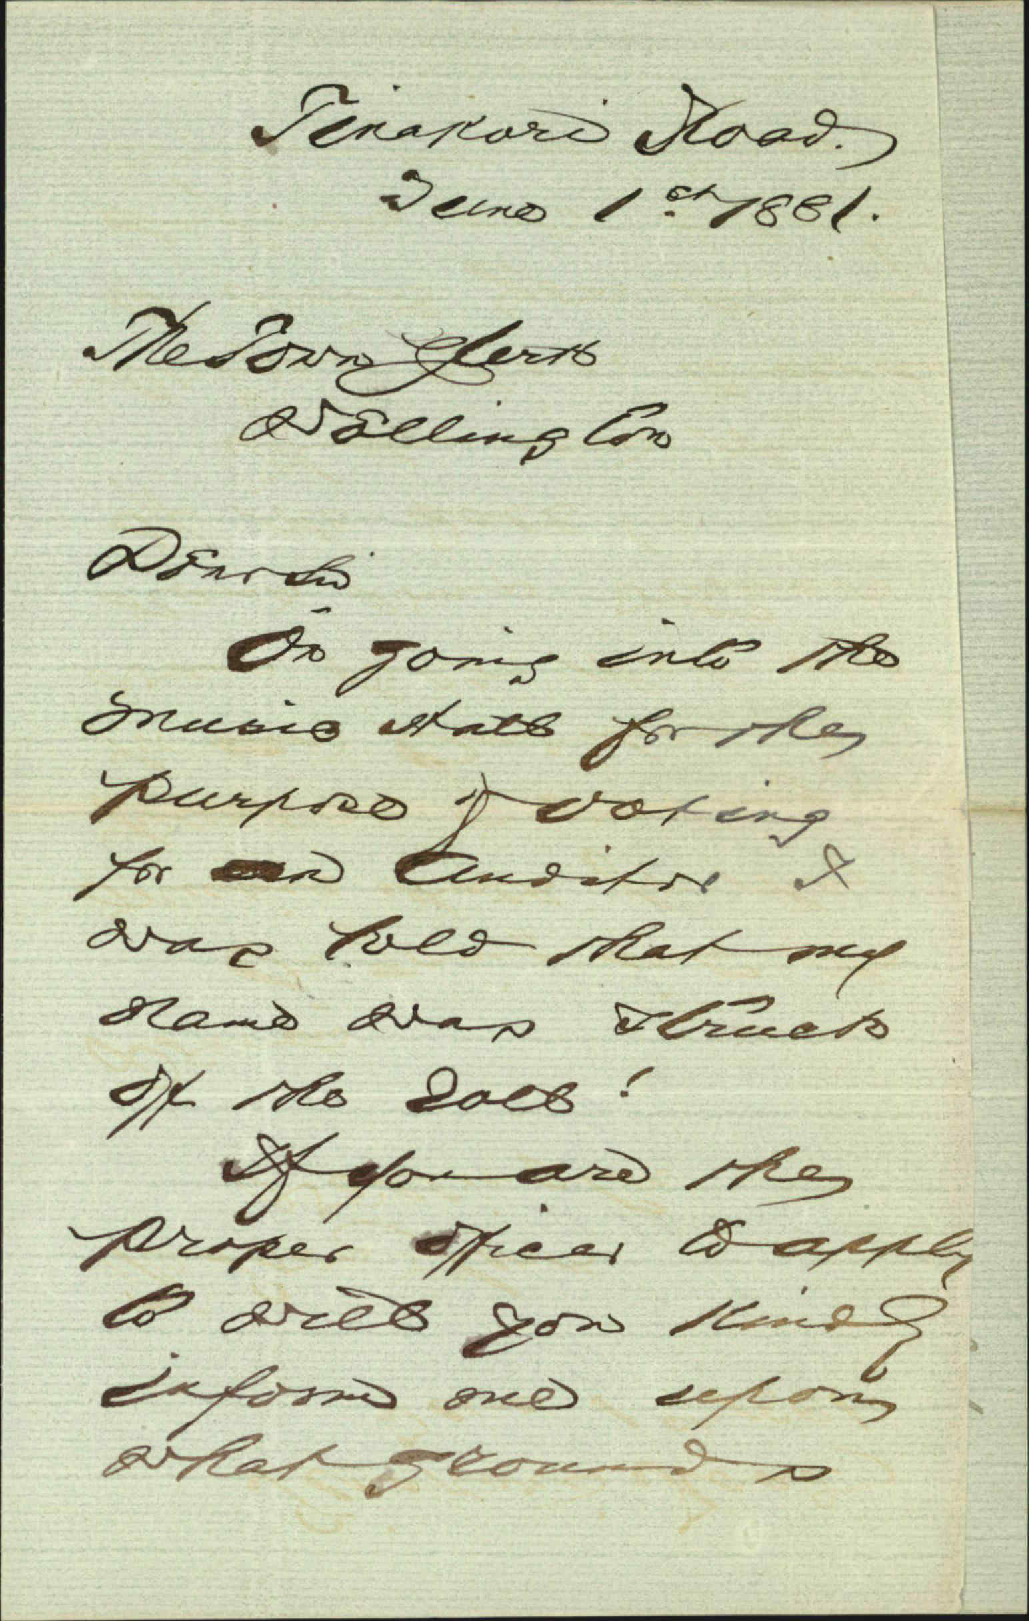 Tinakori Road.
June 1st 1881.
The Town Clerk
Wellington
Dear Sir
On going into the
Music Hall for the
purpose of voting
for an Auditor I
was told that my
name was struck
off the Roll!
If you are the
proper officer to apply
to will you kindly
inform me upon
what grounds